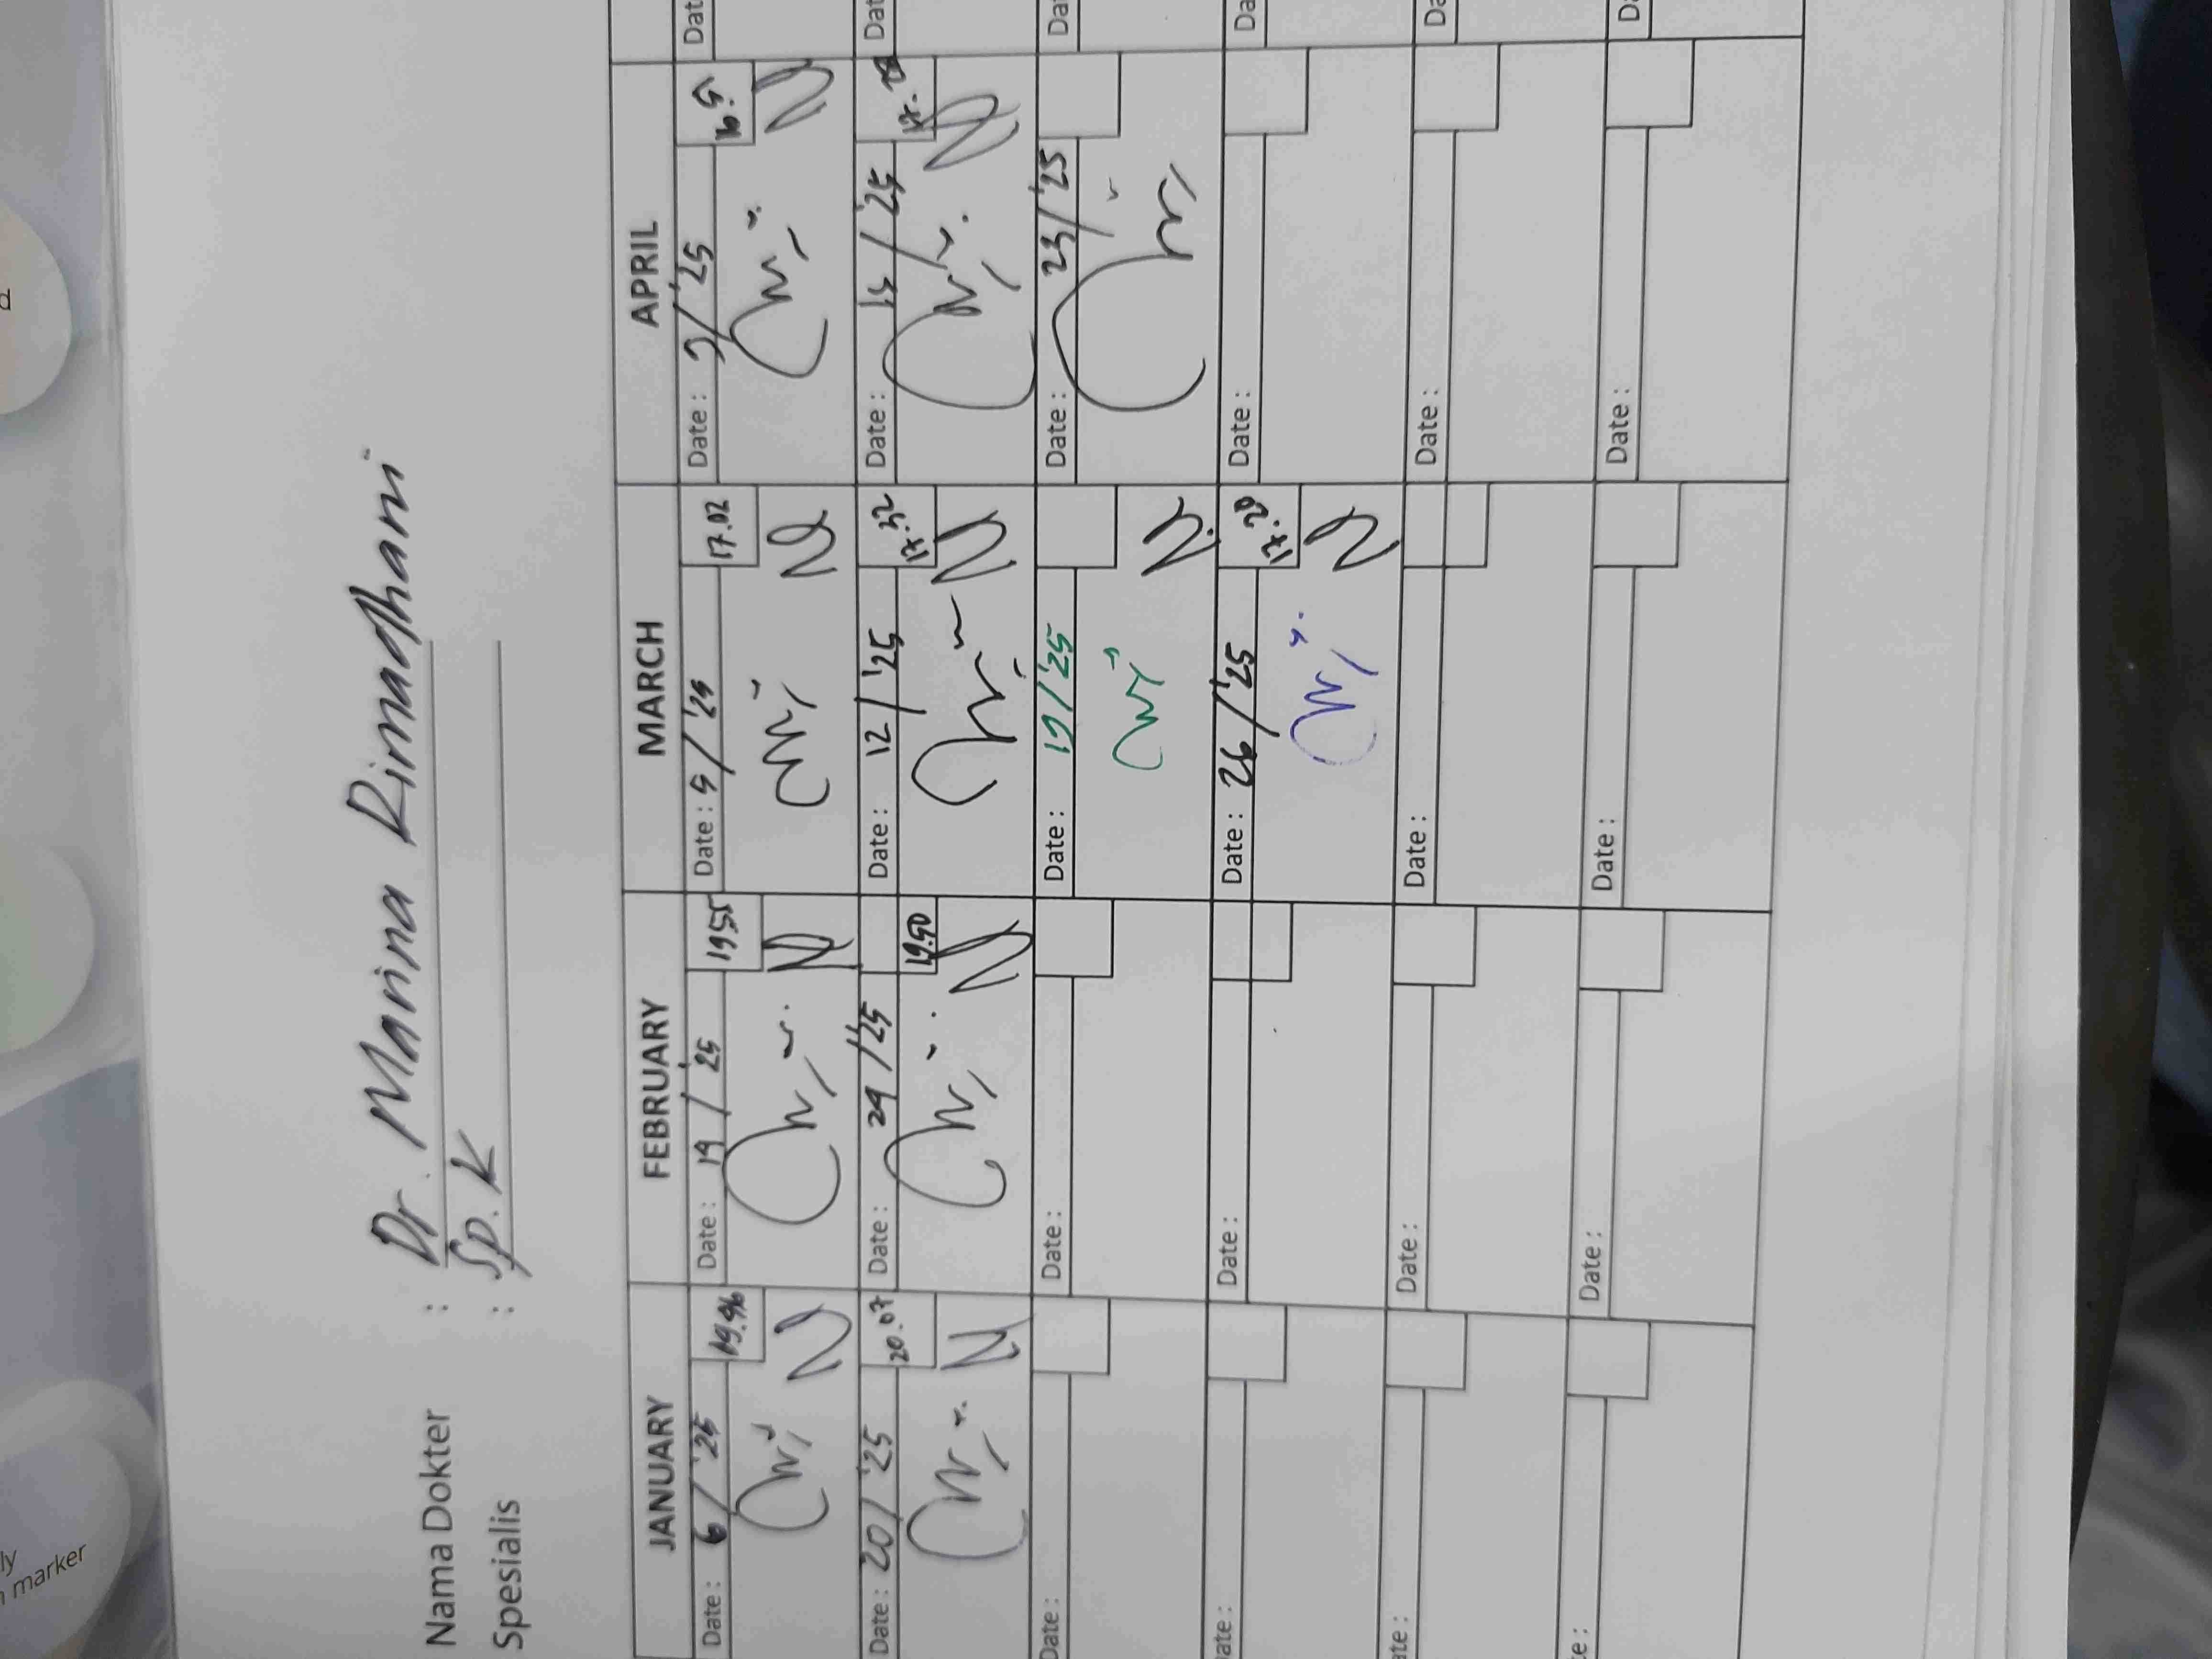 Nama Dokter : Dr. Marina Rimadhani
Spesialis : Sp. K
JANUARY FEBRUARY MARCH APRIL
Date : 6 / '25 19.46 Date : 19 / '25 19.55 Date : 5 / '25 17.02 Date : / '25 Dat
Date : 20 / '25 20.07 Date : / '25 19.50 Date : 12 / '25 17.32 Date : / '25 Dat
Date : Date : Date : 19 / '25 Date : 23 / '25 Da
ate : Date : Date : 26 / '25 17.20 Date : Da
ate : Date : Date : Date : Da
te : Date : Date : Date : D
ly
marker